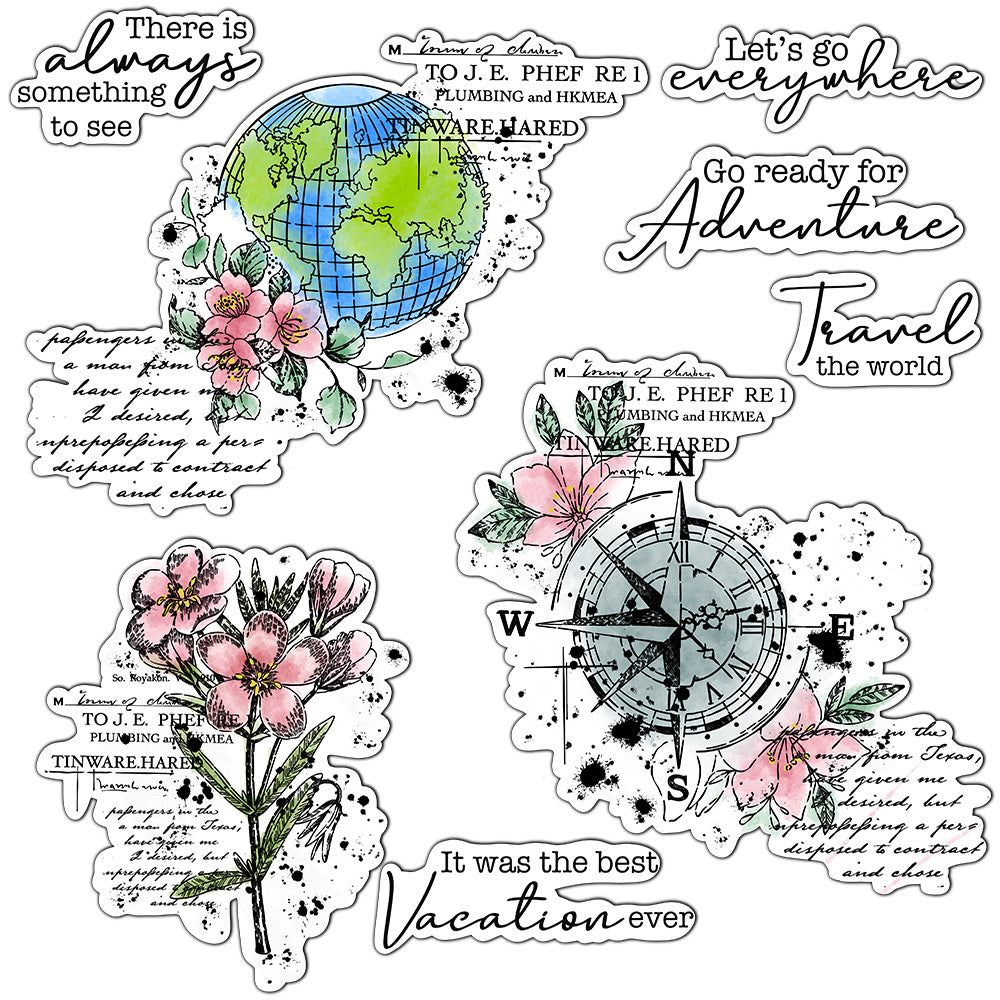 There is
always
something
to see
M
TO J. E. PHEF RE 1
PLUMBING and HKMEA
TINWARE.HARED
Let's go
everywhere
Go ready for
Adventure
Travel
the world
paſsengers in the
a man from
have given me
I desired, but
nprepoſseſsing a per=
disposed to contract
and chose
M
TO J. E. PHEF RE 1
PLUMBING and HKMEA
TINWARE.HARED
N
XII
III
V
W
E
S
paſsengers in the
a man from Texas,
have given me
I desired, but
nprepoſseſsing a per=
disposed to contract
and chose
So. Royakon.
M
TO J. E. PHEF RE 1
PLUMBING and HKMEA
TINWARE.HARED
paſsengers in the
a man from Texas,
have given me
I desired, but
nprepoſseſsing a per=
disposed to contract
and chose
It was the best
Vacation ever